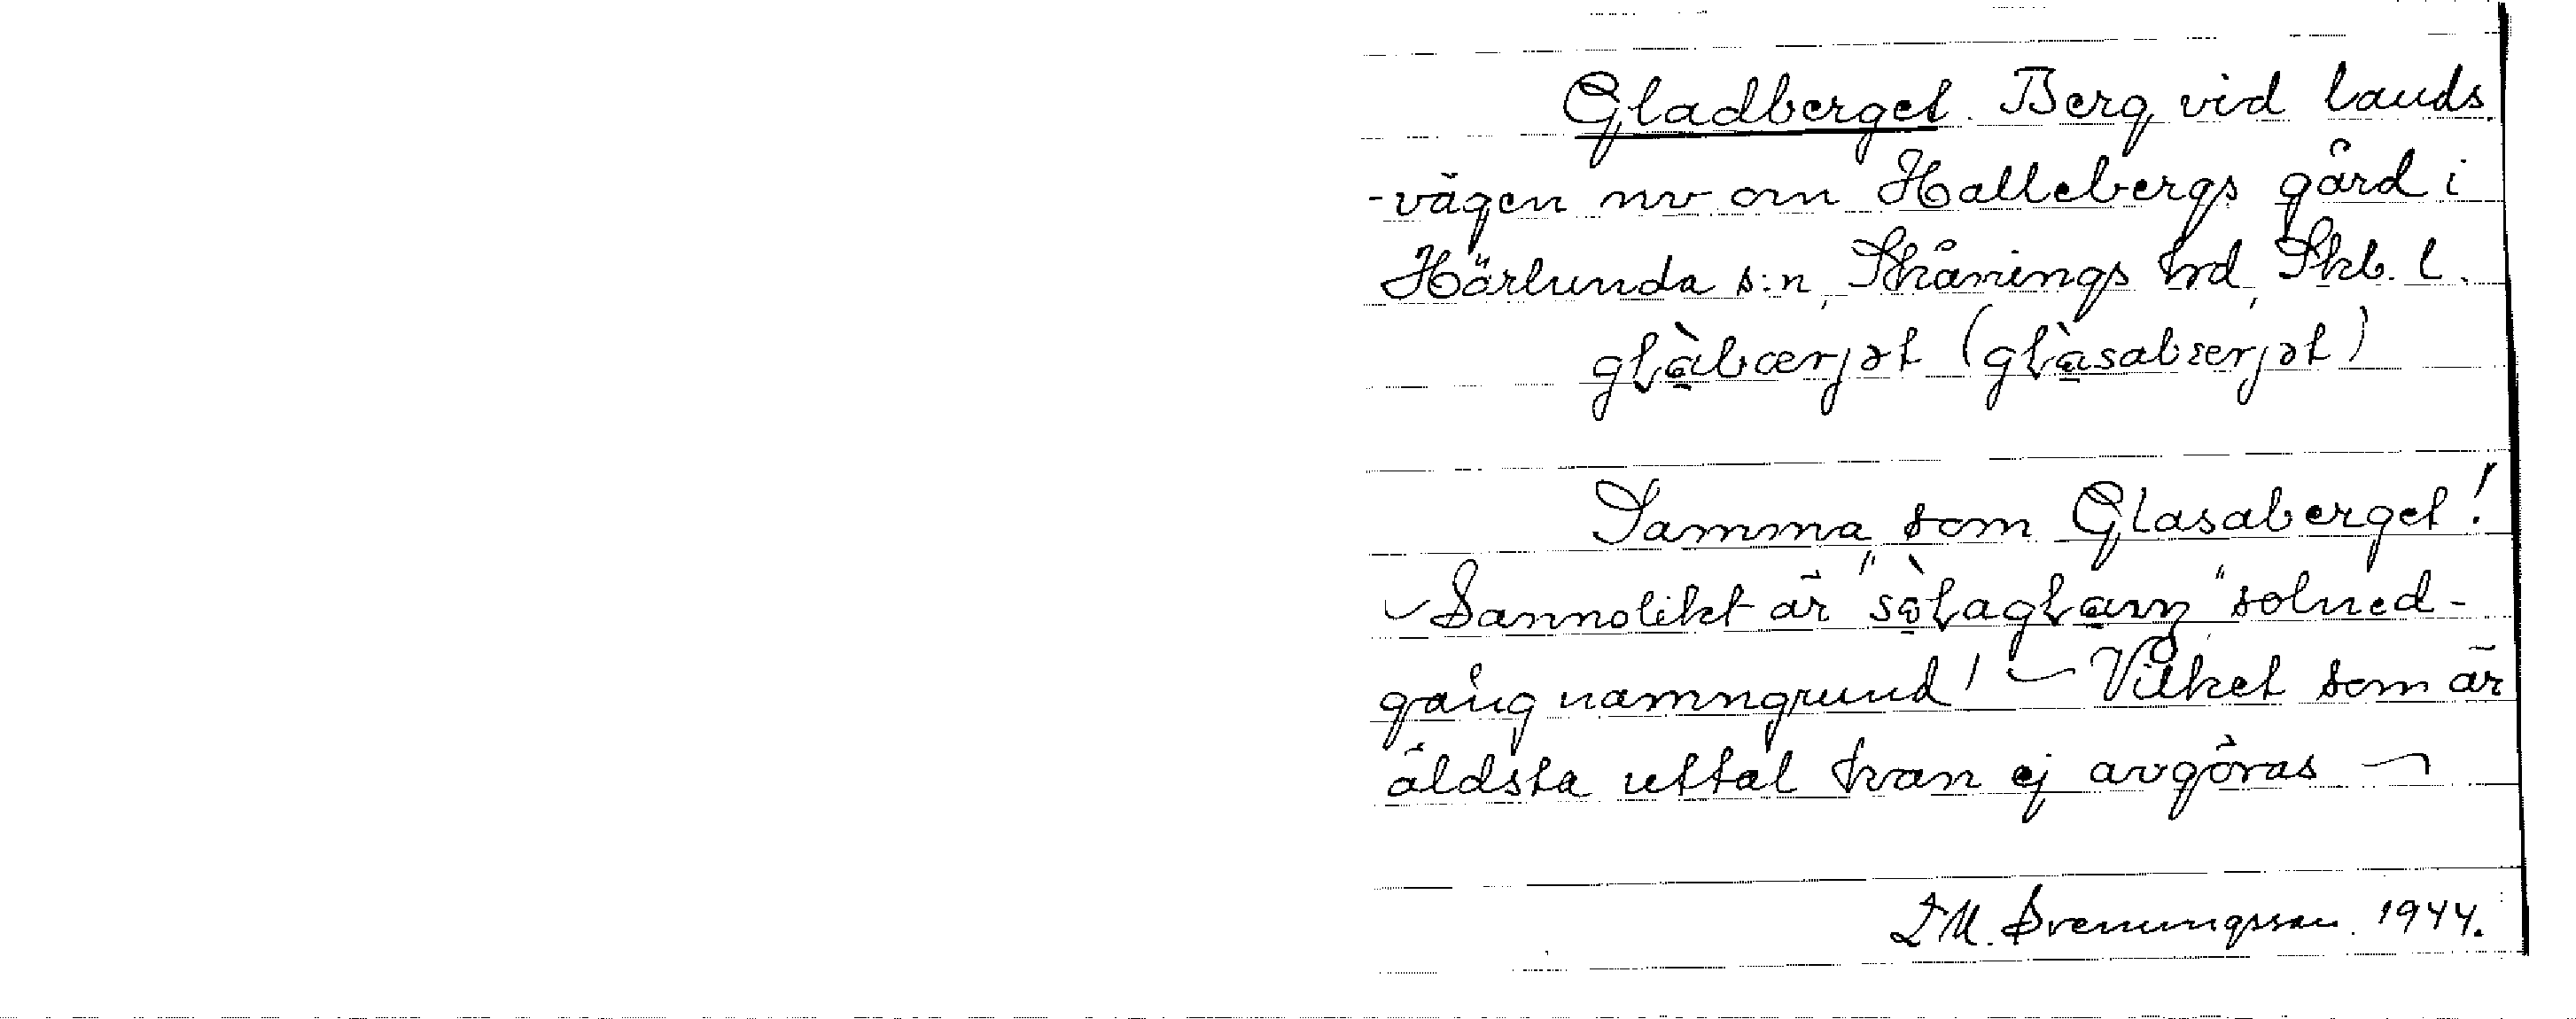 Gladberget. Berg vid lands
-vägen nv om Hallebergs gård i
Härlunda s:n, Skånings hrd, Skb. l.
glàbærjət (glàsabærjət)
Samma som Glasaberget!
Sannolikt är "sòlaglavn", solned-
gång namngrund! – Vilket som är
äldsta uttal kan ej avgöras –
Svenungsson. 1944.